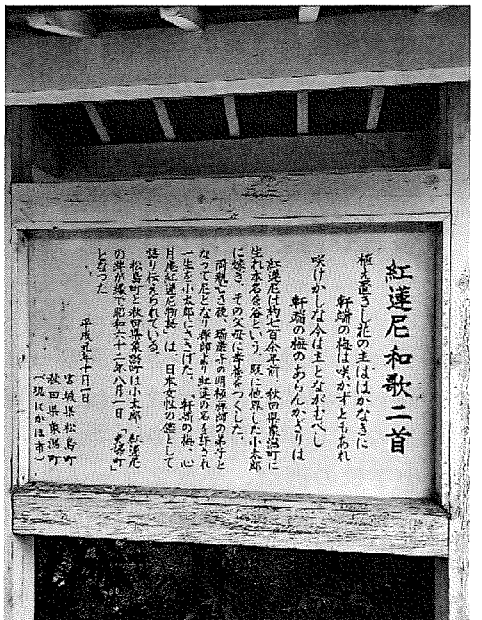 紅蓮尼和歌二首
植え置きし花の主ははかなきに
軒端の梅は咲かずともあれ
咲けかしな今は主とながむべし
軒端の梅のあらんかぎりは
紅蓮尼は約七百余年前、秋田県象潟町に
生れ本名を谷という。既に他界した小太郎
に嫁ぎ、その父母に孝養をつくした。
両親亡き後、瑞巌寺の明極禅師の弟子と
なって尼となり禅師より紅蓮の名を許され
一生を小太郎にささげた。「軒端の梅、心
月庵紅蓮尼物語」は、日本女性の鑑として
語り伝えられている。
松島町と秋田県象潟町は小太郎、紅蓮尼
の縁が縁で昭和六十二年八月一日「夫婦町」
となった
平成元年十月一日
宮城県松島町
秋田県象潟町
(現にかほ市)